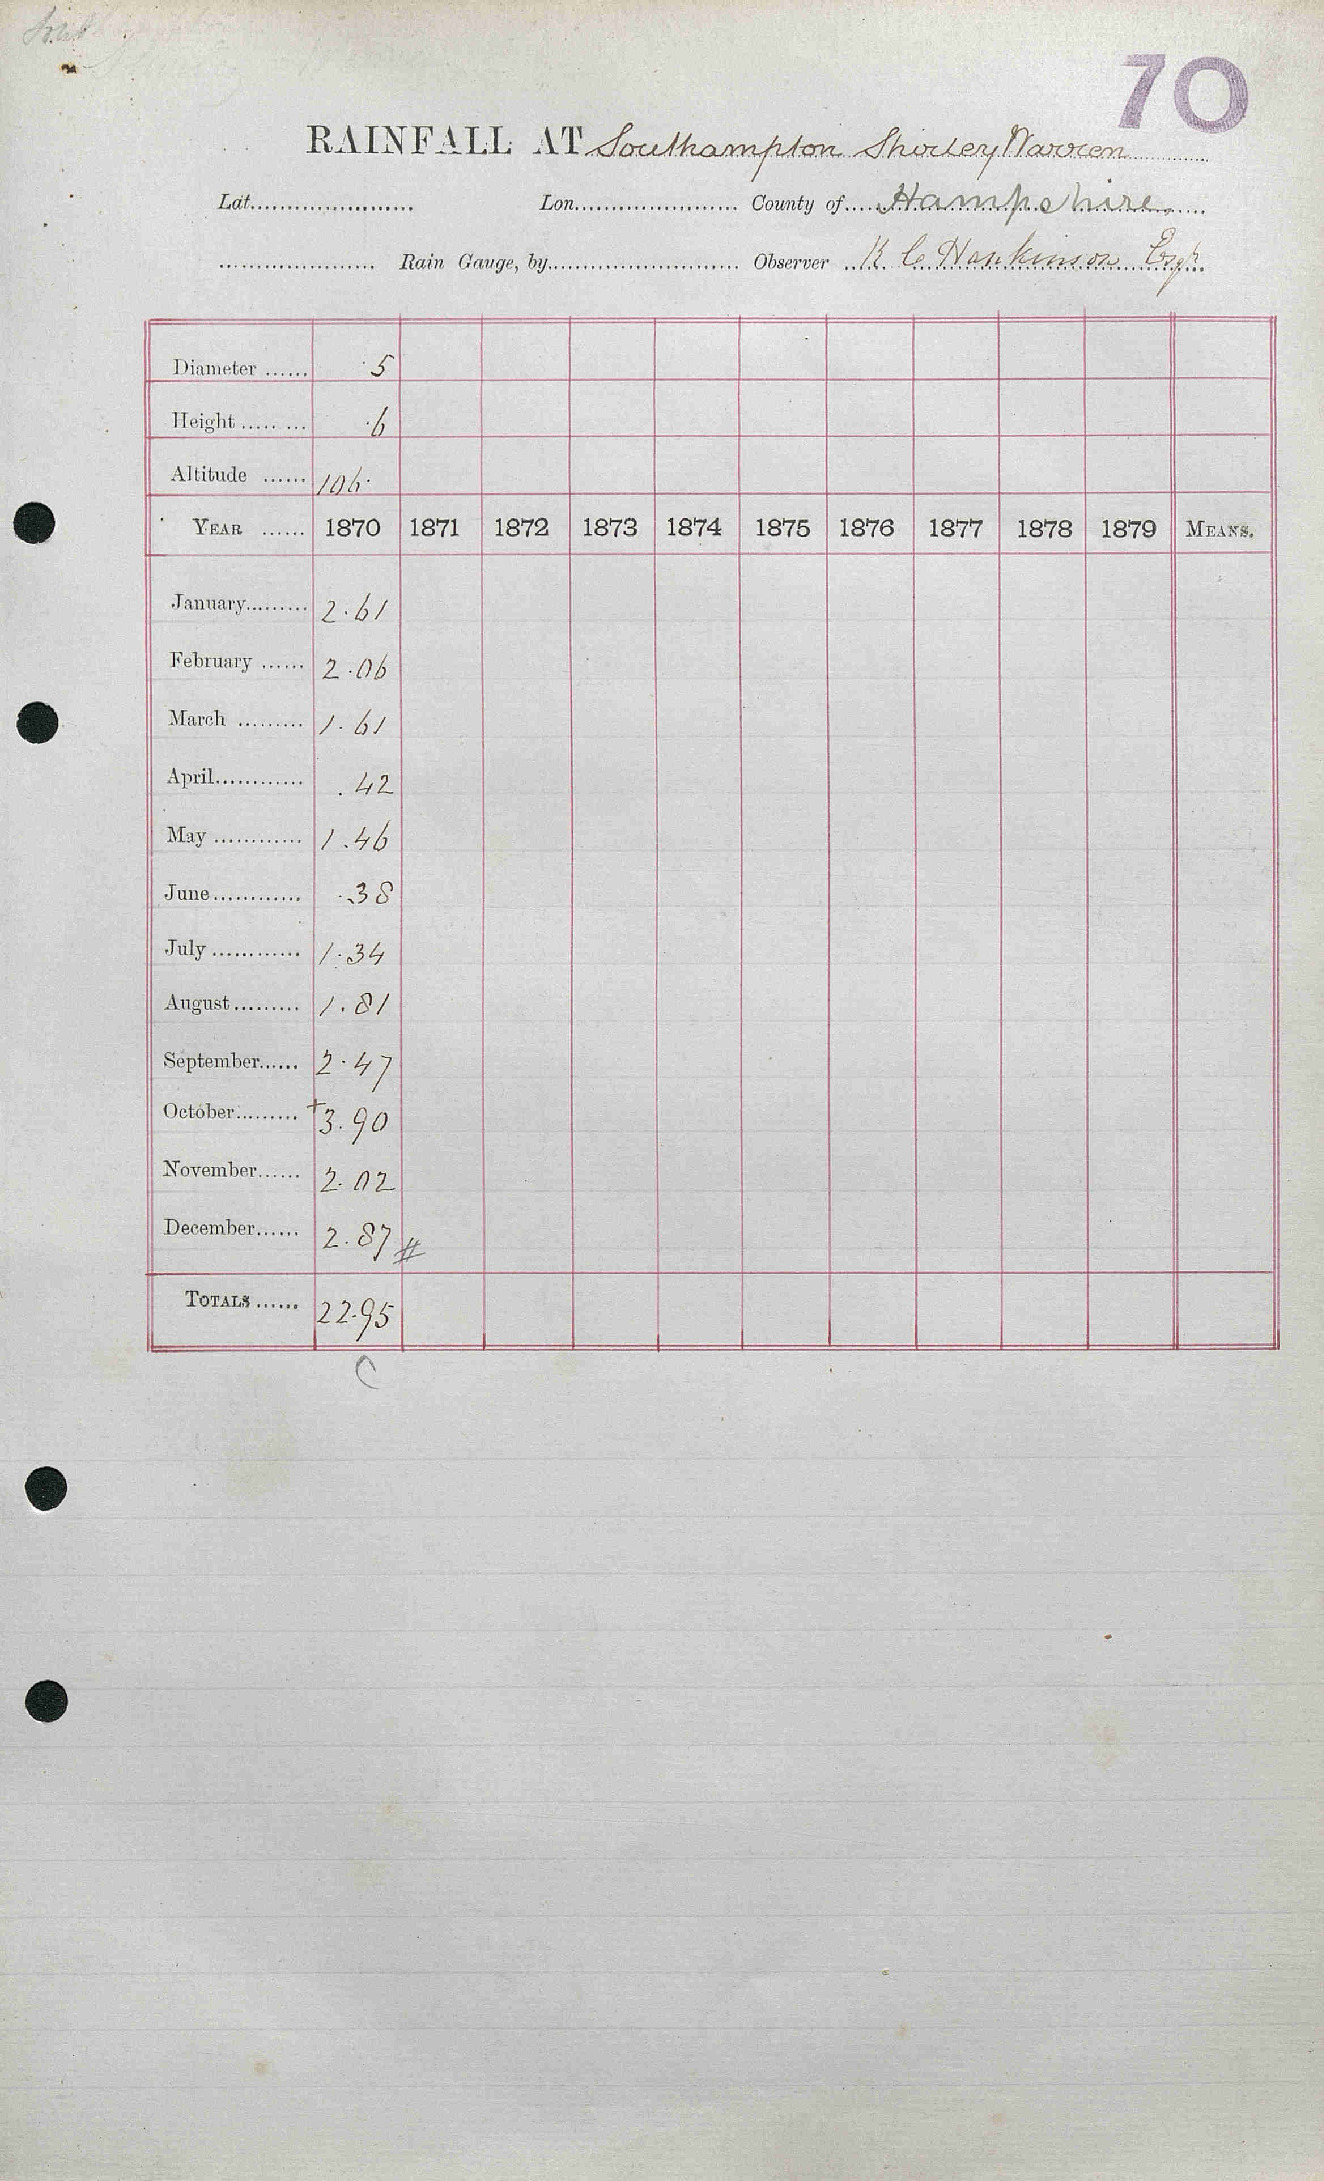 70
RAINFALL AT Southampton Shirley Warren
Lat. Lon. County of Hampshire.
Rain Gauge, by Observer R C Hankinson Esqr
Diameter ...... 5
Height ..... ... 6
Altitude ...... 106
YEAR ...... 1870 1871 1872 1873 1874 1875 1876 1877 1878 1879 MEANS.
January ......... 2.61
February ...... 2.06
March ......... 1.61
April ............ .42
May ............ 1.46
June ............ .38
July ............ 1.34
August ......... 1.81
September ...... 2.47
October ......... +3.90
November ...... 2.02
December ...... 2.87 #
TOTALS ...... 22.95
C